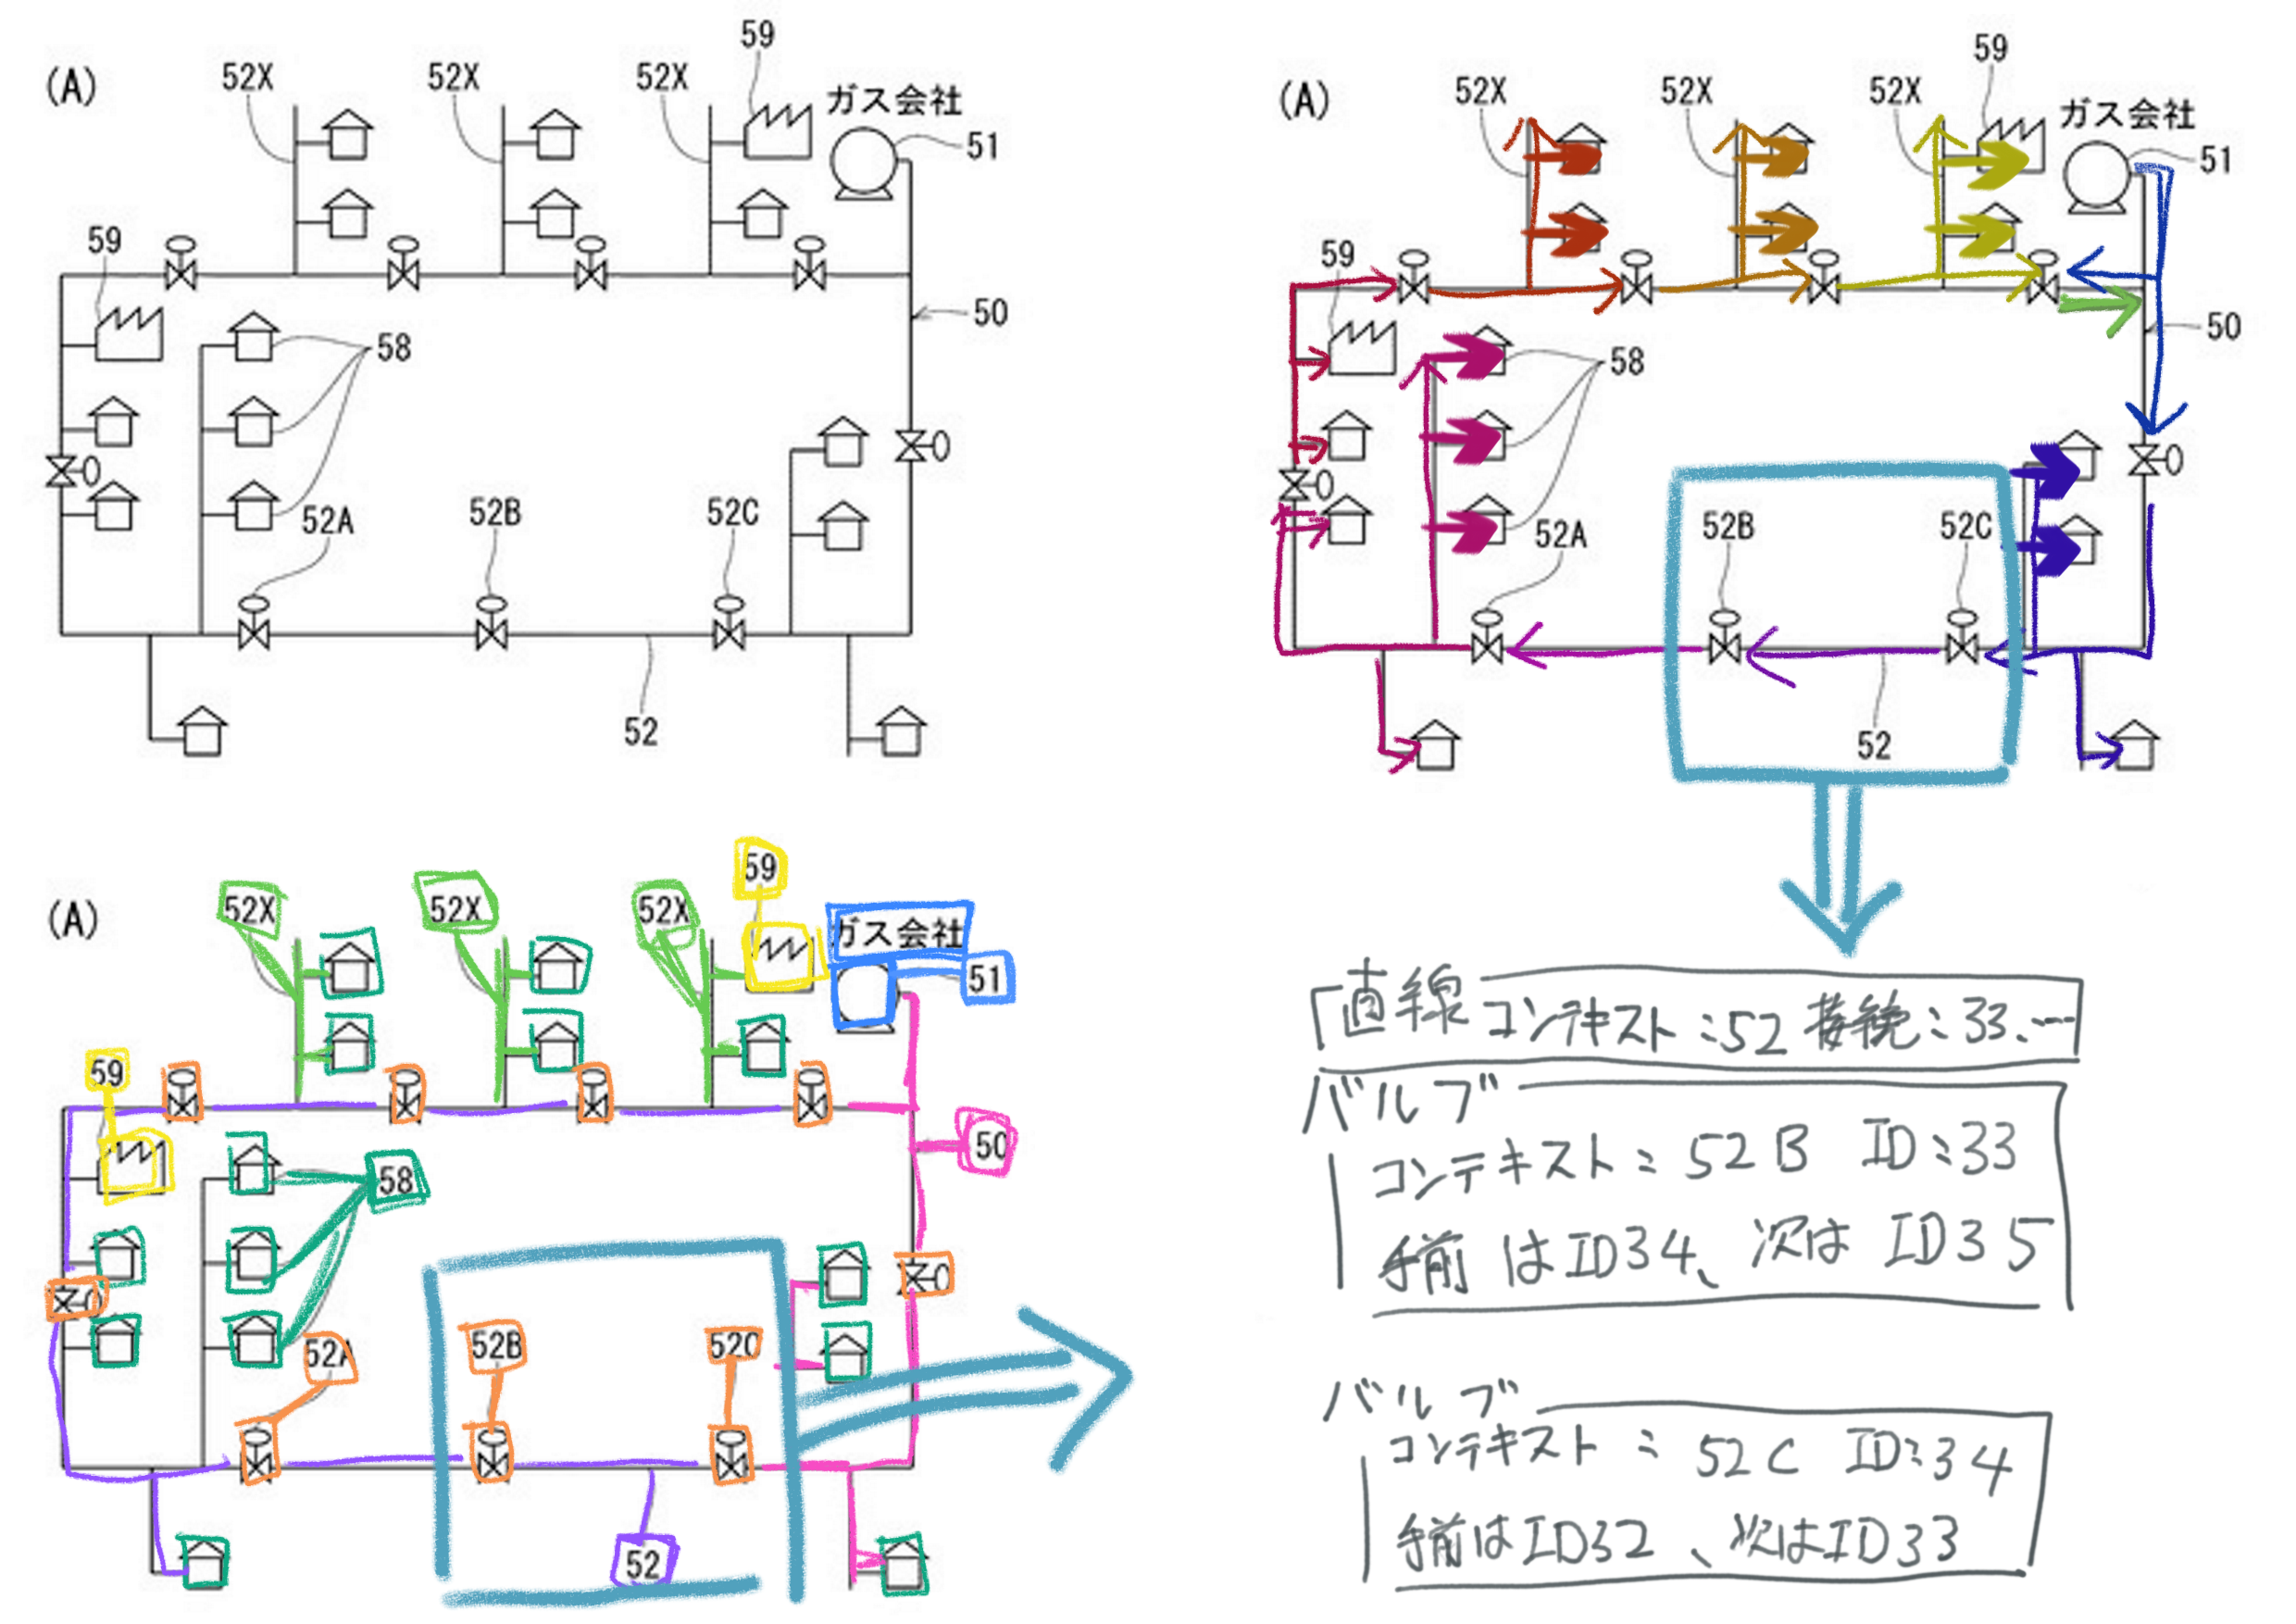 59
52X
52X
52X
(A)
ガス会社
51
59
50
58
52A
52B
52C
52
59
52X
52X
52X
(A)
ガス会社
51
59
50
58
52A
52B
52C
52
59
52X
52X
52X
(A)
ガス会社
51
59
50
58
52A
52B
52C
52
「直線 コンテキスト:52 接続:33、…
バルブ
コンテキスト:52B ID:33
手前はID34、次はID35
バルブ
コンテキスト:52C ID:34
手前はID32、次はID33